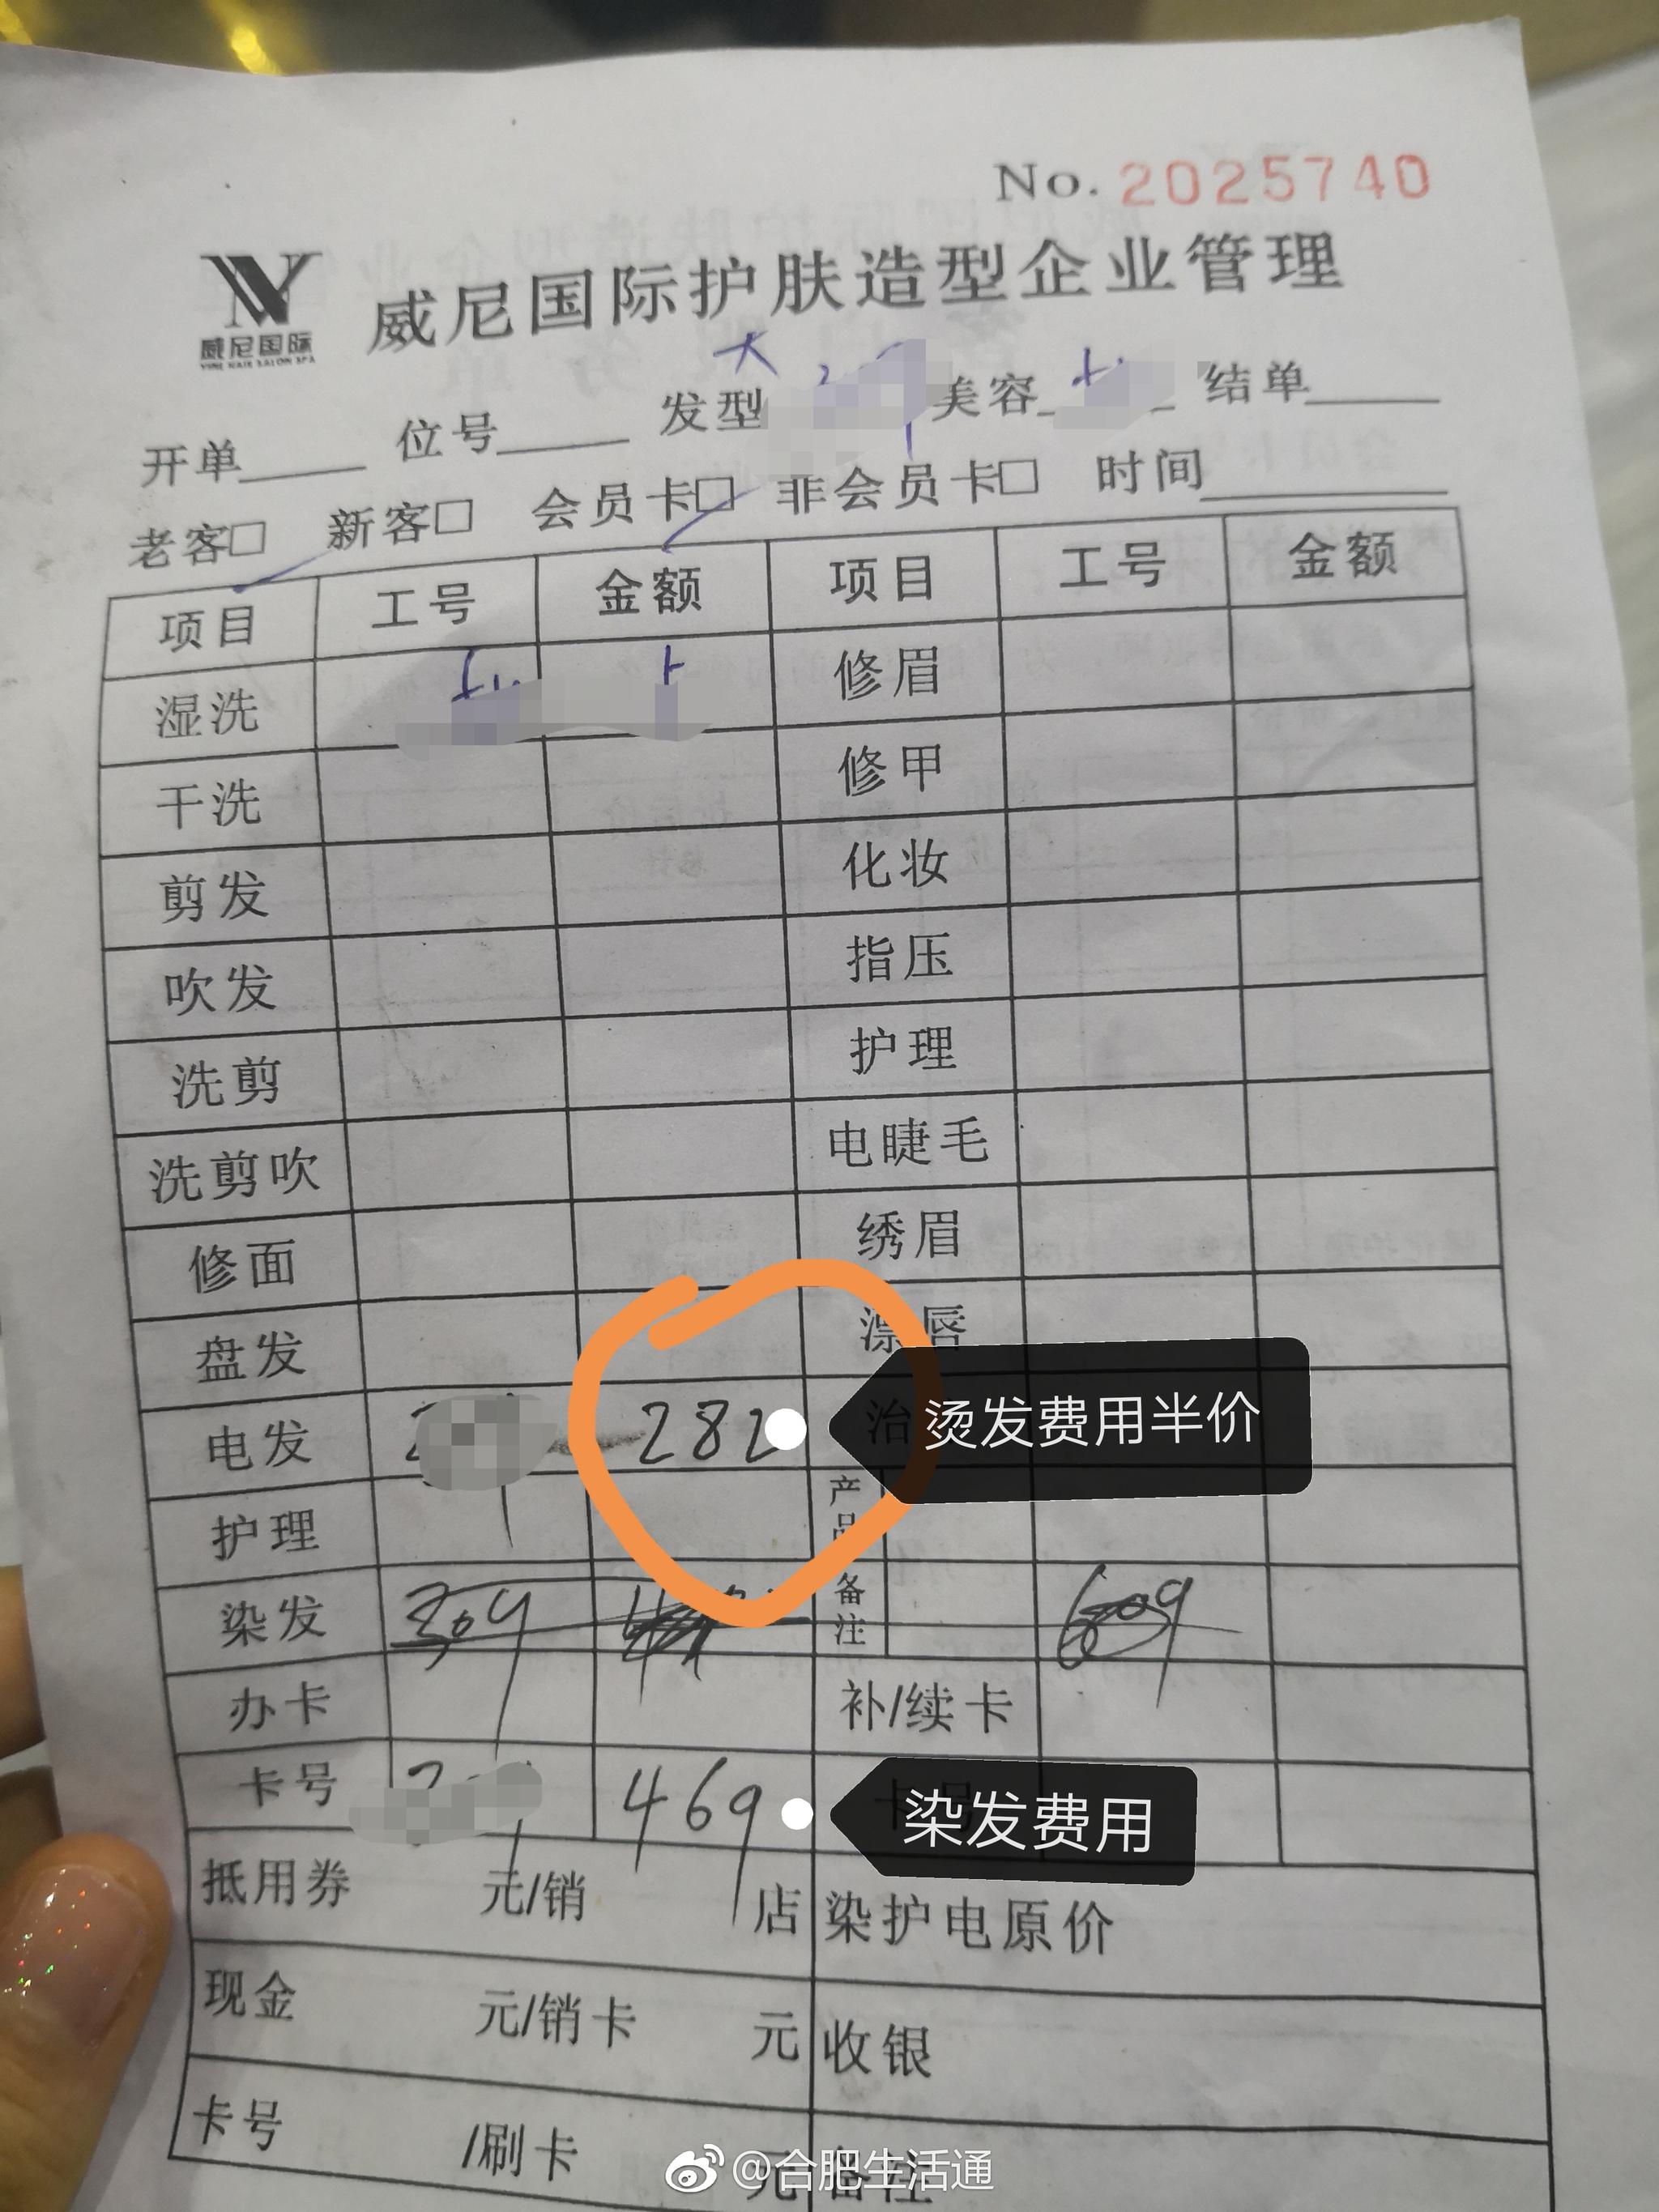 No. 2025740
威尼国际护肤造型企业管理
威尼国际
VINE HAIR SALON SPA
开单 位号 发型 美容 结单
老客□ 新客□ 会员卡□ 非会员卡□ 时间
项目 工号 金额 项目 工号 金额
湿洗 修眉
干洗 修甲
剪发 化妆
吹发 指压
洗剪 护理
洗剪吹 电睫毛
修面 绣眉
盘发 漂唇
电发 282 治 烫发费用半价
护理 产品
染发 309 备注 609
办卡 补/续卡
卡号 469 卡号 染发费用
抵用券 元/销 店 染护电原价
现金 元/销卡 元 收银
卡号 /刷卡 元 备注
@合肥生活通